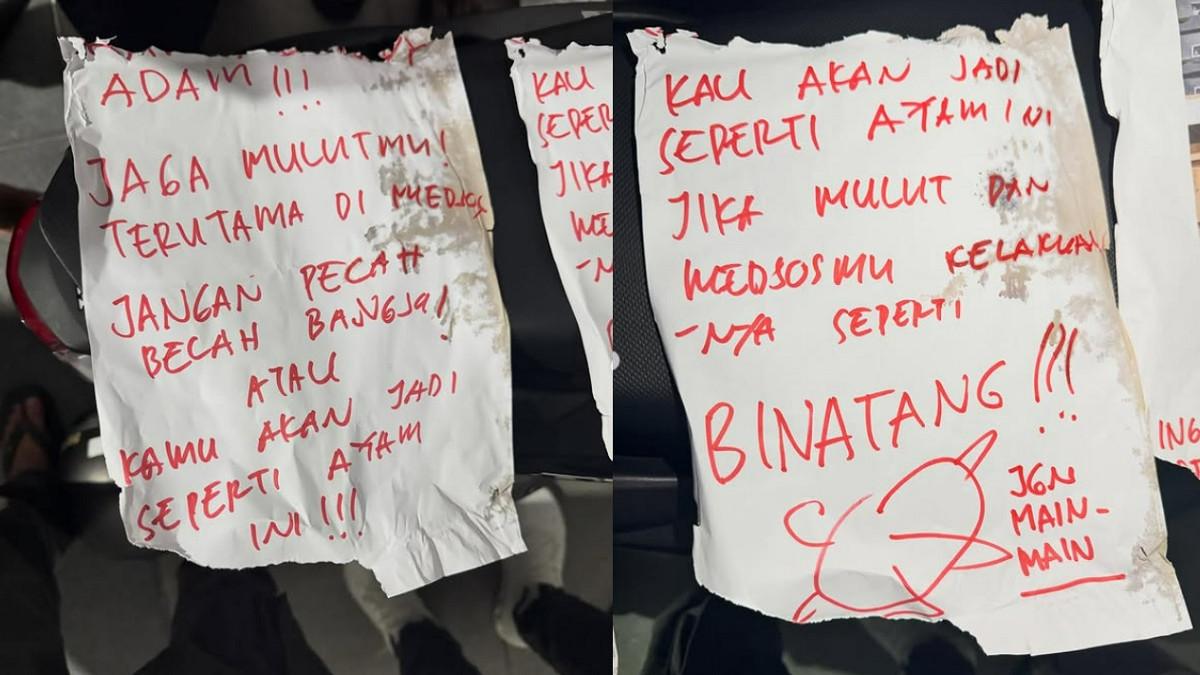 ADAM!!!
JAGA MULUTMU!
TERUTAMA DI MEDSOS
JANGAN PECAH
BECAH BANGSA!
ATAU
KAMU AKAN JADI
SEPERTI AYAM
INI!!!
KAU
SEPER
JIKA
ME
-N
KAU AKAN JADI
SEPERTI AYAM INI
JIKA MULUT DAN
MEDSOSMU KELAKUAN
-NYA SEPERTI
BINATANG!!!
JGN
MAIN-
MAIN
ING